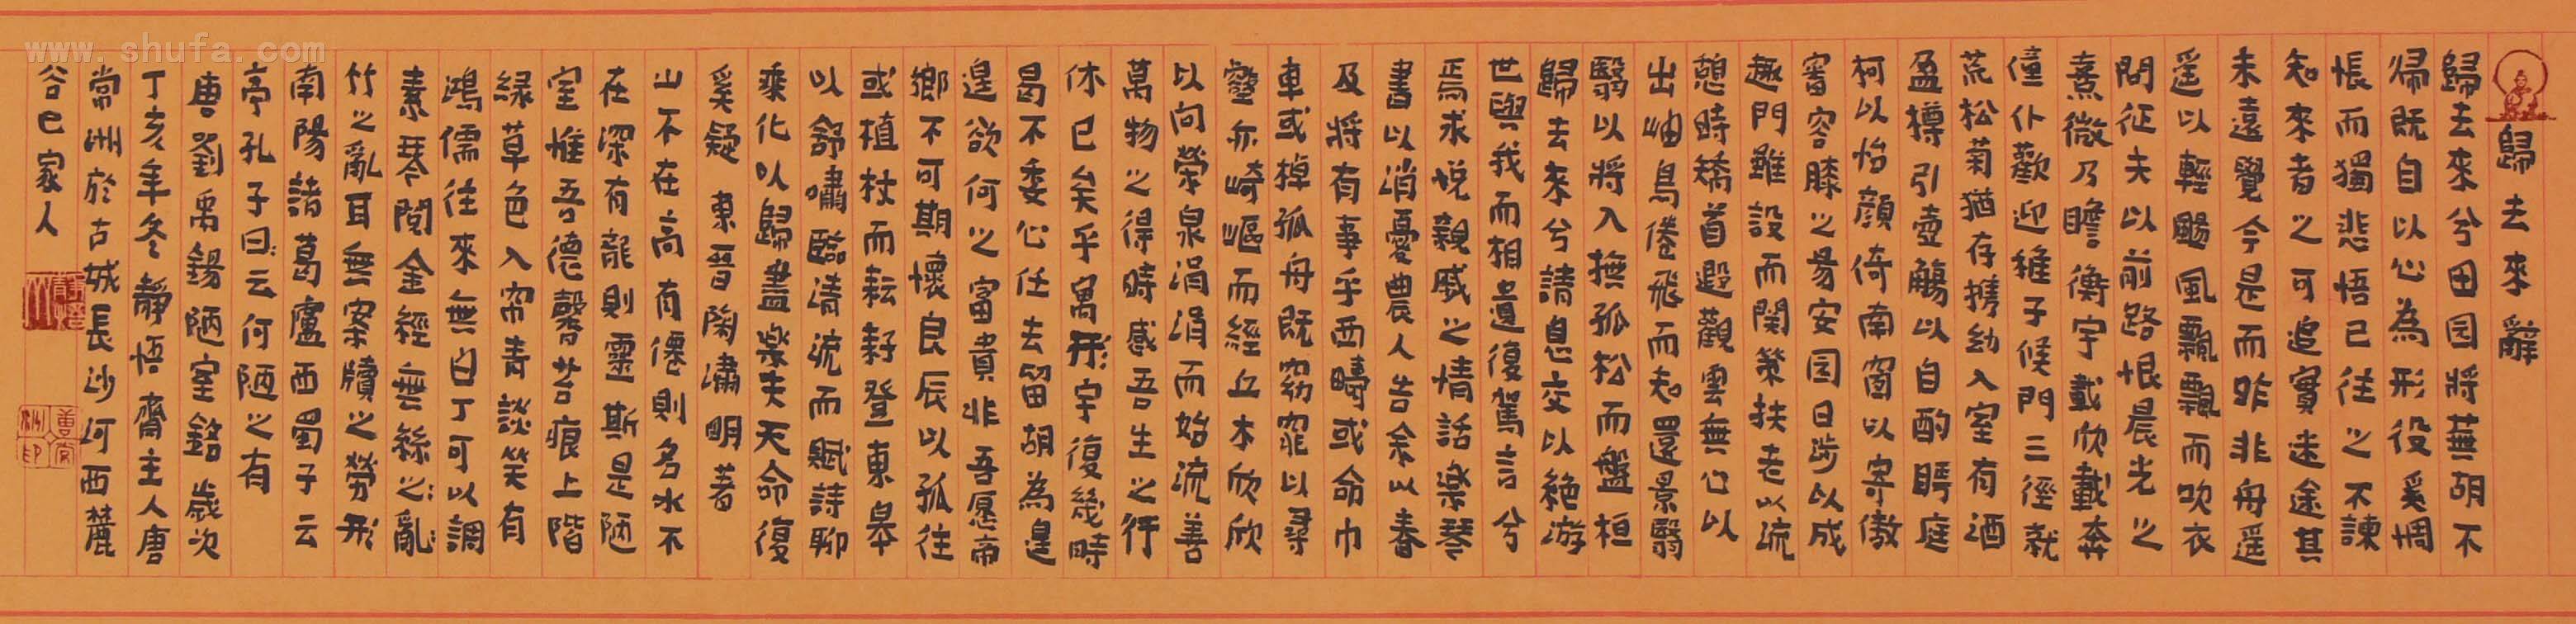 www.shufa.com
歸去來辭
歸去來兮田园將蕪胡不
㷌既自以心為形役奚惆
悵而獨悲悟已往之不諫
知來者之可追實迷途其
未遠覺今是而昨非舟遥
遥以輕颺風飄飄而吹衣
問征夫以前路恨晨光之
熹微乃瞻衡宇載欣載奔
僮仆歡迎稚子候門三徑就
荒松菊猶存携幼入室有酒
盈樽引壺觴以自酌眄庭
柯以怡顏倚南窗以寄傲
審容膝之易安园日涉以成
趣門雖設而関策扶老以流
憩時矯首遐觀雲無心以
出岫鳥倦飛而知還景翳
翳以將入撫孤松而盤桓
歸去來兮請息交以绝游
世與我而相遺復駕言兮
焉求悅親戚之情話樂琴
書以消憂農人告余以春
及將有事乎西疇或命巾
車或棹孤舟既窈窕以尋
壑亦崎嶇而經丘木欣欣
以向榮泉涓涓而始流善
萬物之得時感吾生之行
休已矣乎寓形宇復幾時
曷不委心任去留胡為遑
遑欲何之富貴非吾愿帝
鄉不可期懷良辰以孤往
或植杖而耘耔登東皋
以舒嘯臨清流而賦詩聊
乘化以歸盡樂夫天命復
奚疑 東晉陶潚明著
山不在高有僊則名水不
在深有龍則靈斯是陋
室惟吾德馨苔痕上階
緑草色入帘青談笑有
鴻儒往來無白丁可以調
素琴閱金經無絲之亂
竹之亂耳無案牘之勞形
南陽諸葛廬西蜀子云
亭孔子曰云何陋之有
唐劉禹錫陋室銘歲次
丁亥年冬靜悟齋主人唐
常洲於古城長沙河西麓
谷已家人